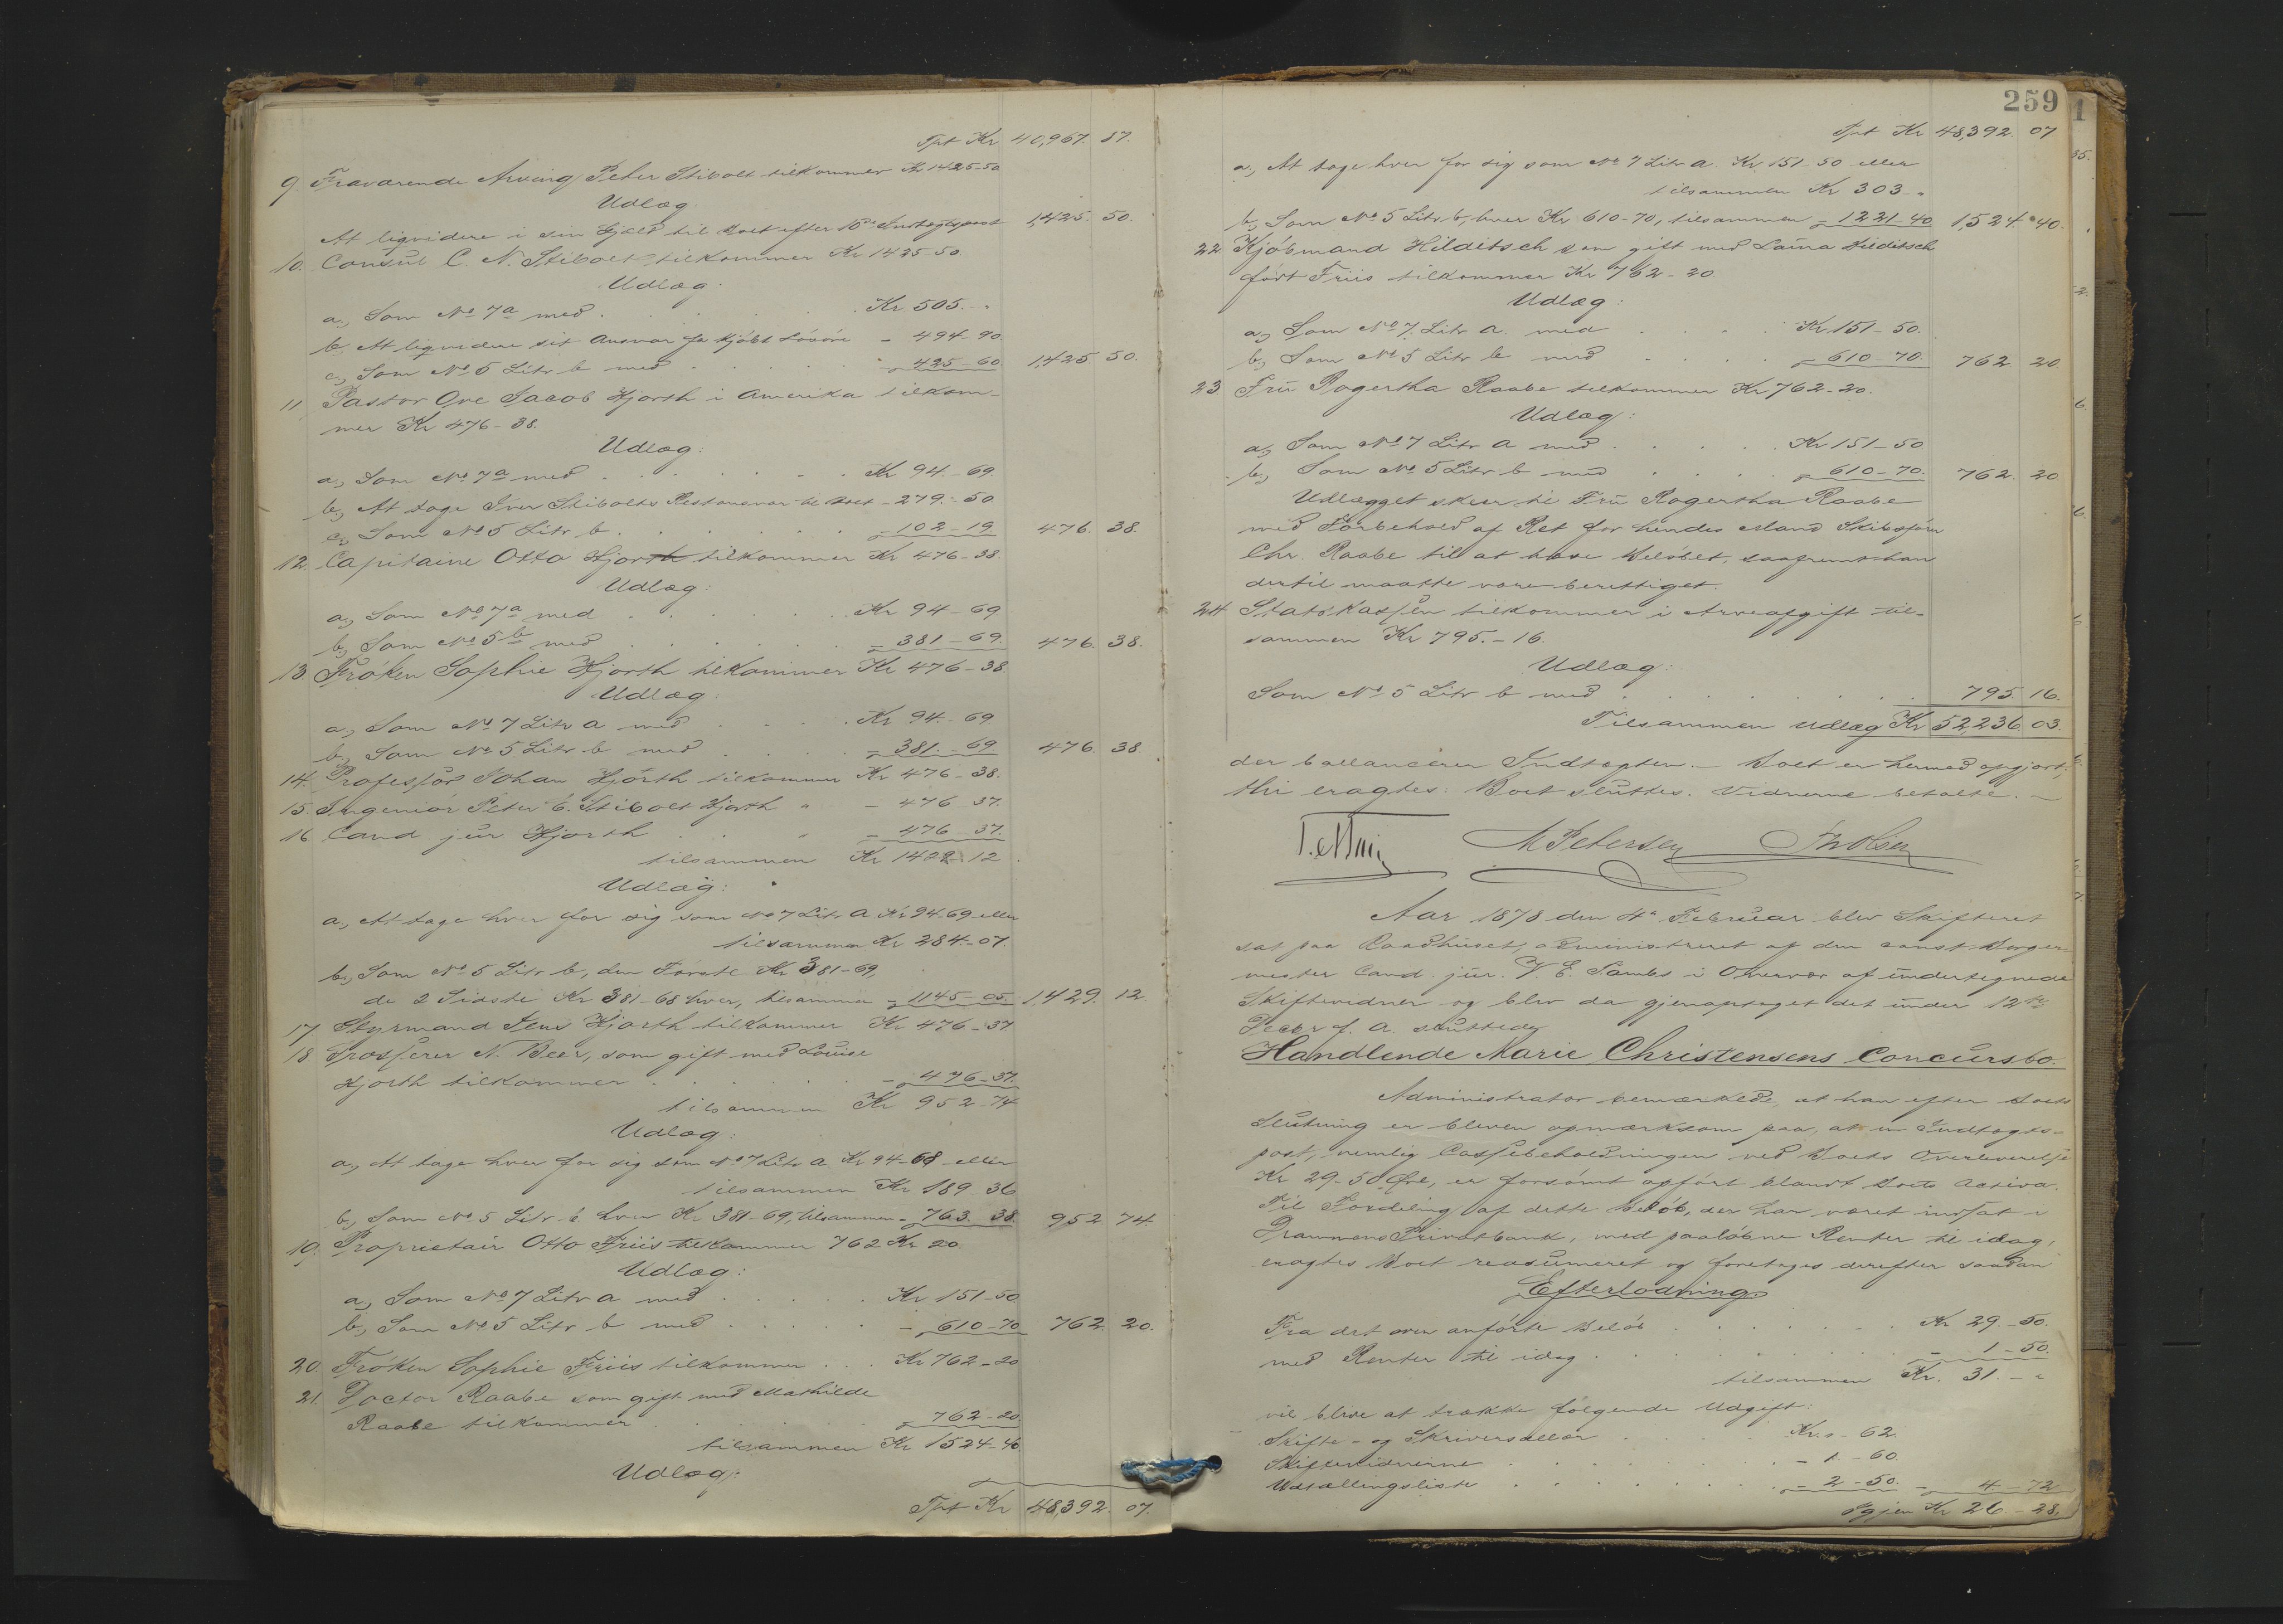 Tpt Kr 40,967. 87.
9. Fraværende Arving Peter Stibolt tilkommer Kr 1425-50
Udlæg
At liqvidere i sin Gjæld til Boet efter 10de Indtægtspost 1,425. 50.
10. Consul C. N. Stibolt tilkommer Kr 1425-50
Udlæg:
a, Som No 7a med . . . . . Kr 505. -
b, At liqvidere sit Ansvar for kjøbt Løsøre - 494-90.
c, Som No 5 Litr b med . . . . - 425-60. 1,425 50.
11 Pastor Ove Jacob Hjorth i Amerika tilkom-
mer Kr 476-38.
Udlæg:
a, Som No 7a med . . . . . Kr 94-69.
b, At tage Iver Stibolts Restansvar til Boet - 279-50
c, Som No 5 Litr b . . . . . - 102-19 476. 38.
12. Capitaine Otto Hjorth tilkommer Kr 476-38.
Udlæg:
a, Som No 7a med . . . . . Kr 94-69
b, Som No 5b med . . . . . - 381-69. 476. 38.
13. Frøken Sophie Hjorth tilkommer Kr 476-38.
Udlæg
a, Som No 7 Litr a med . . . . Kr 94.-69.
b, Som No 5 Litr b med . . . . - 381.-69 476. 38
14. Professor Johan Hjorth tilkommer Kr 476-38.
15. Ingeniør Peter C. Stibolt Hjorth " - 476 37.
16 Cand. jur Hjorth . . " - 476 37.
tilsammen Kr 1429 12.
Udlæg:
a, At tage hver for sig som No 7 Litr a Kr 94-69 eller
tilsammen Kr 284-07.
b, Som No 5 Litr b, den Første Kr 381-69,
de 2 Sidste Kr 381-68 hver, tilsammen - 1145-05. 1,429. 12.
17. Styrmand Jens Hjorth tilkommer Kr 476-37.
18 N. Beer, som gift med Louise
Hjorth tilkommer . . . . . - 476-37.
tilsammen Kr 952-74
Udlæg:
a, At tage hver for sig som No 7 Litr a Kr 94-68 eller
tilsammen Kr 189-36
b, Som No 5 Litr b hver Kr 381-69, tilsammen - 763. 38. 952 74.
19. Proprietair Otto Friis tilkommer 762 Kr 20
Udlæg:
a, Som No 7 Litr a med . . . . . Kr 151-50
b, Som No 5 Litr b med . . . . . - 610-70 762. 20.
20. Frøken Sophie Friis tilkommer . . . Kr 762-20
21. Doctor Raabe som gift med Mathilde
Raabe tilkommer . . . . . - 762-20.
tilsammen Kr 1524-40
Udlæg:
Tpt Kr 48,392. 07.
259
Tpt Kr 48,392. 07
a, At tage hver for sig som No 7 Litr a. Kr 151-50 eller
tilsammen Kr 303-"
b, Som No 5 Litr b, hver Kr 610-70, tilsammen - 1221-40 1,524. 40.
22 Kjøbmand Hilditsch som gift med Laura Hilditsch
født Friis tilkommer Kr 762-20
Udlæg:
a, Som No 7. Litr a med . . . . Kr 151-50.
b, Som No 5 Litr b med . . . . - 610-70. 762 20
23 Fru Rogertha Raabe tilkommer Kr 762-20.
Udlæg:
a, Som No 7 Litr a med . . . . Kr 151-50
b, Som No 5 Litr b med . . . . - 610-70. 762. 20
Udlægget skeer til Fru Rogertha Raabe
med Forbehold af Ret for hendes Mand Skibsfører
Chr. Raabe til at hæve Beløbet, saafremt han
dertil maatte være berettiget.
24 Statskassen tilkommer i Arveafgift til-
sammen Kr 795.-16.
Udlæg:
Som No 5 Litr b med . . . . . . . 795. 16.
Tilsammen Udlæg Kr 52,236. 03.
der ballancerer Indtægten. - Boet er hermed opgjort;
thi eragtes: Boet sluttes. Vidnerne betalte. -
M Petersen
Aar 1878 den 4de Februar blev Skifteret
sat paa Raadhuset, administreret af den const. Borger-
mester Cand. jur. V. E. Sambs i Overvær af undertegnede
Skiftevidner og blev da gjenoptaget det under 12te
Decbr f. A. sluttede
Handlende Marie Christensens Concursbo.
Administrator bemærkede at han efter Boets
Slutning er bleven opmærksom paa, at en Indtægts-
post, nemlig Cassebeholdningen ved Boets Overleverelse
Kr 29-50 Øre, er forsømt opført blandt Boets Activa.
Til Fordeling af dette Beløb, der har været indsat i
Drammens Privatbank, med paaløbne Renter til idag,
eragtes Boet reasumeret og foretages derefter saadan
Efterlodning.
Fra det oven anførte Beløb . . . . . . Kr 29.-50.
med Renter til idag . . . . . . . - 1-50.
tilsammen Kr. 31.-"
vil blive at trække følgende Udgift:
Skifte- og Skriversallær . . . . Kr "- 62.
Skiftevidnerne . . . . . - 1.-60.
Udtællingsliste . . . . . - 2-50. - 4-72
Igjen Kr 26.-28.